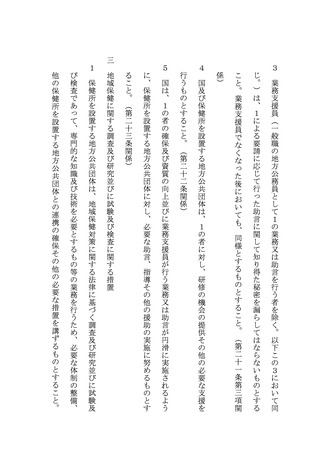 ３　業務支援員（一般職の地方公務員として１の業務又は助言を行う者を除く。以下この３において同
じ。）は、１による要請に応じて行った助言に関して知り得た秘密を漏らしてはならないものとする
こと。業務支援員でなくなった後においても、同様とするものとすること。（第二十一条第三項関
係）
４　国及び保健所を設置する地方公共団体は、１の者に対し、研修の機会の提供その他の必要な支援を
行うものとすること。（第二十二条関係）
５　国は、１の者の確保及び資質の向上並びに業務支援員が行う業務又は助言が円滑に実施されるよう
に、保健所を設置する地方公共団体に対し、必要な助言、指導その他の援助の実施に努めるものとす
ること。（第二十三条関係）
三　地域保健に関する調査及び研究並びに試験及び検査に関する措置
１　保健所を設置する地方公共団体は、地域保健対策に関する法律に基づく調査及び研究並びに試験及
び検査であって、専門的な知識及び技術を必要とするもの等の業務を行うため、必要な体制の整備、
他の保健所を設置する地方公共団体との連携の確保その他の必要な措置を講ずるものとすること。